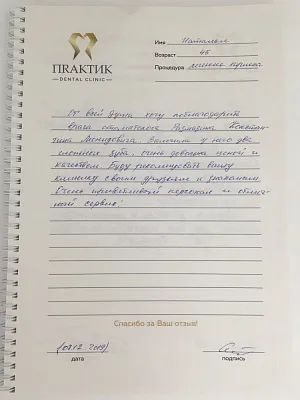 ПRАКТИК
DENTAL CLINIC
Имя Наталья
Возраст 46
Процедура лечение кариеса
От всей души хочу поблагодарить
врача стоматолога
Леонидовича. Лечила у него два
сложных зуба, очень довольна ценой и
качеством. Буду рекомендовать Вашу
клинику своим друзьям и знакомым.
Очень приветливый персонал и отлич-
ный сервис!
Спасибо за Ваш отзыв!
дата
подпись